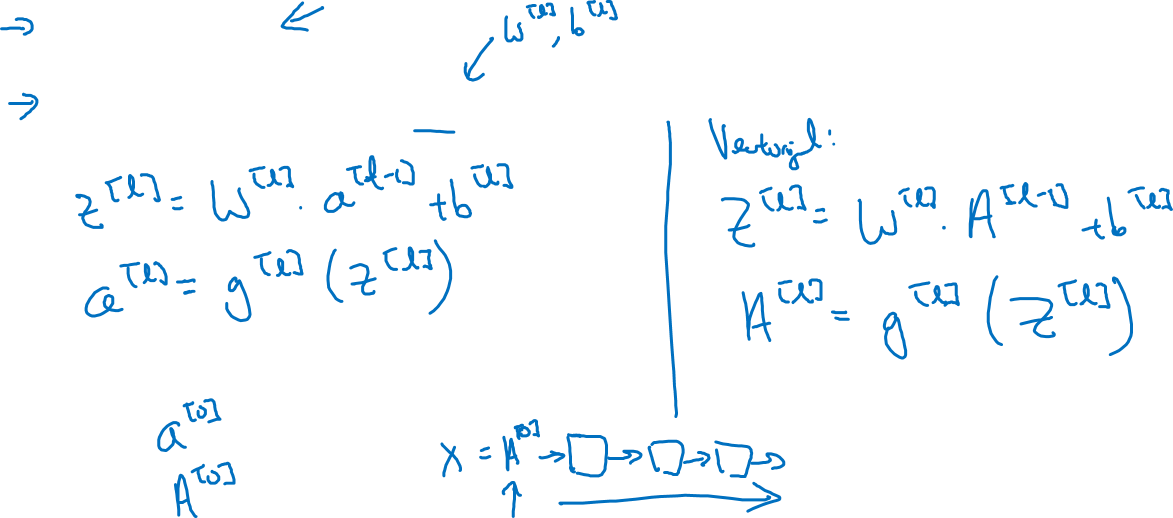 W^[l], b^[l]
z^[l] = W^[l] · a^[l-1] + b^[l]
a^[l] = g^[l] (z^[l])
Z^[l] = W^[l] · A^[l-1] + b^[l]
A^[l] = g^[l] (Z^[l])
a^[0]
A^[0]
X = A^[0] → □ → □ → □ →